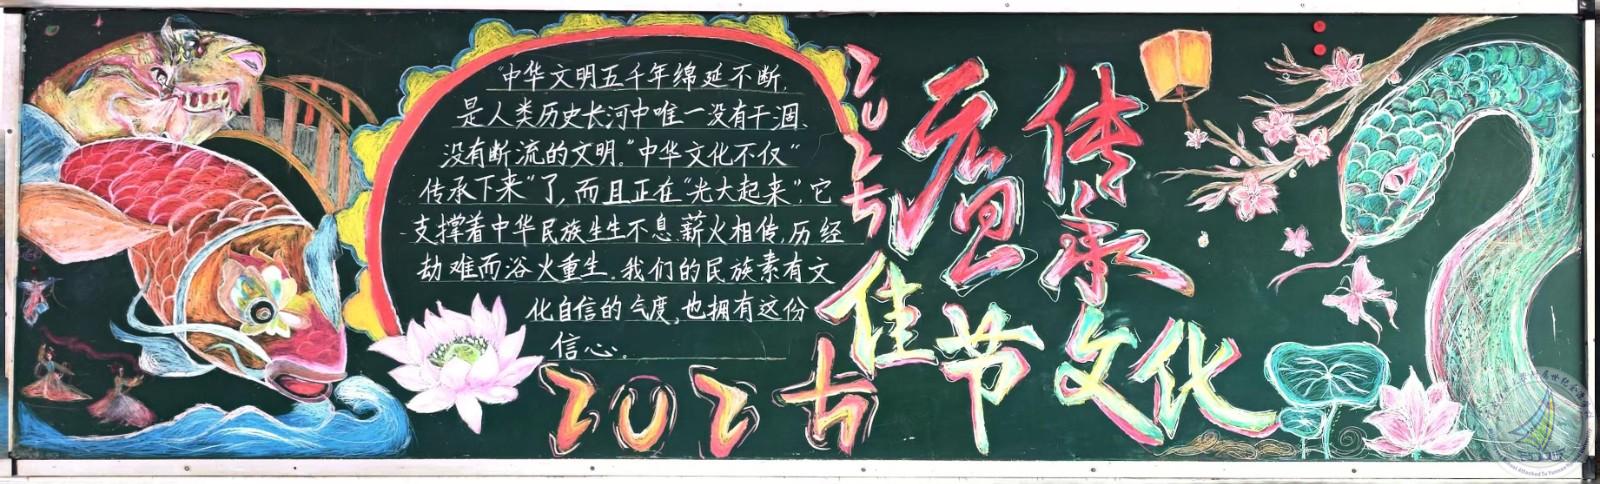 "中华文明五千年绵延不断,
是人类历史长河中唯一没有干涸、
没有断流的文明。"中华文化不仅"
传承下来"了,而且正在"光大起来",它
支撑着中华民族生生不息、薪火相传,历经
劫难而浴火重生。我们的民族素有文
化自信的气度,也拥有这份
信心。
2025
2025
元旦佳节
传承文化